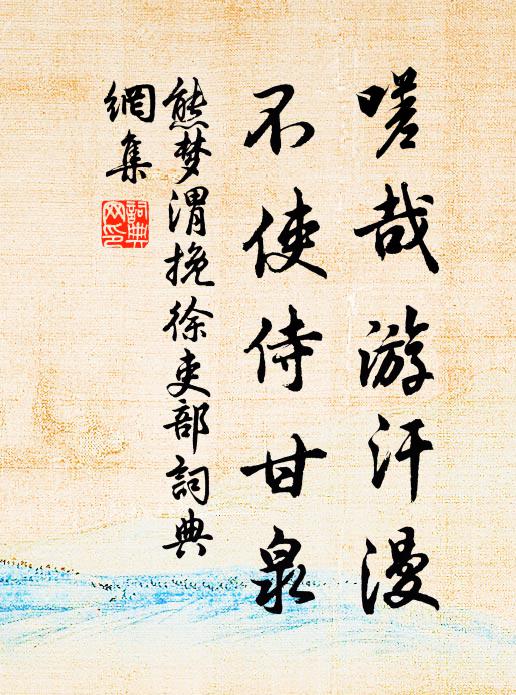 嗟哉游汗漫
不使侍甘泉
熊梦渭挽徐吏部詞典
網集
詞典
网印